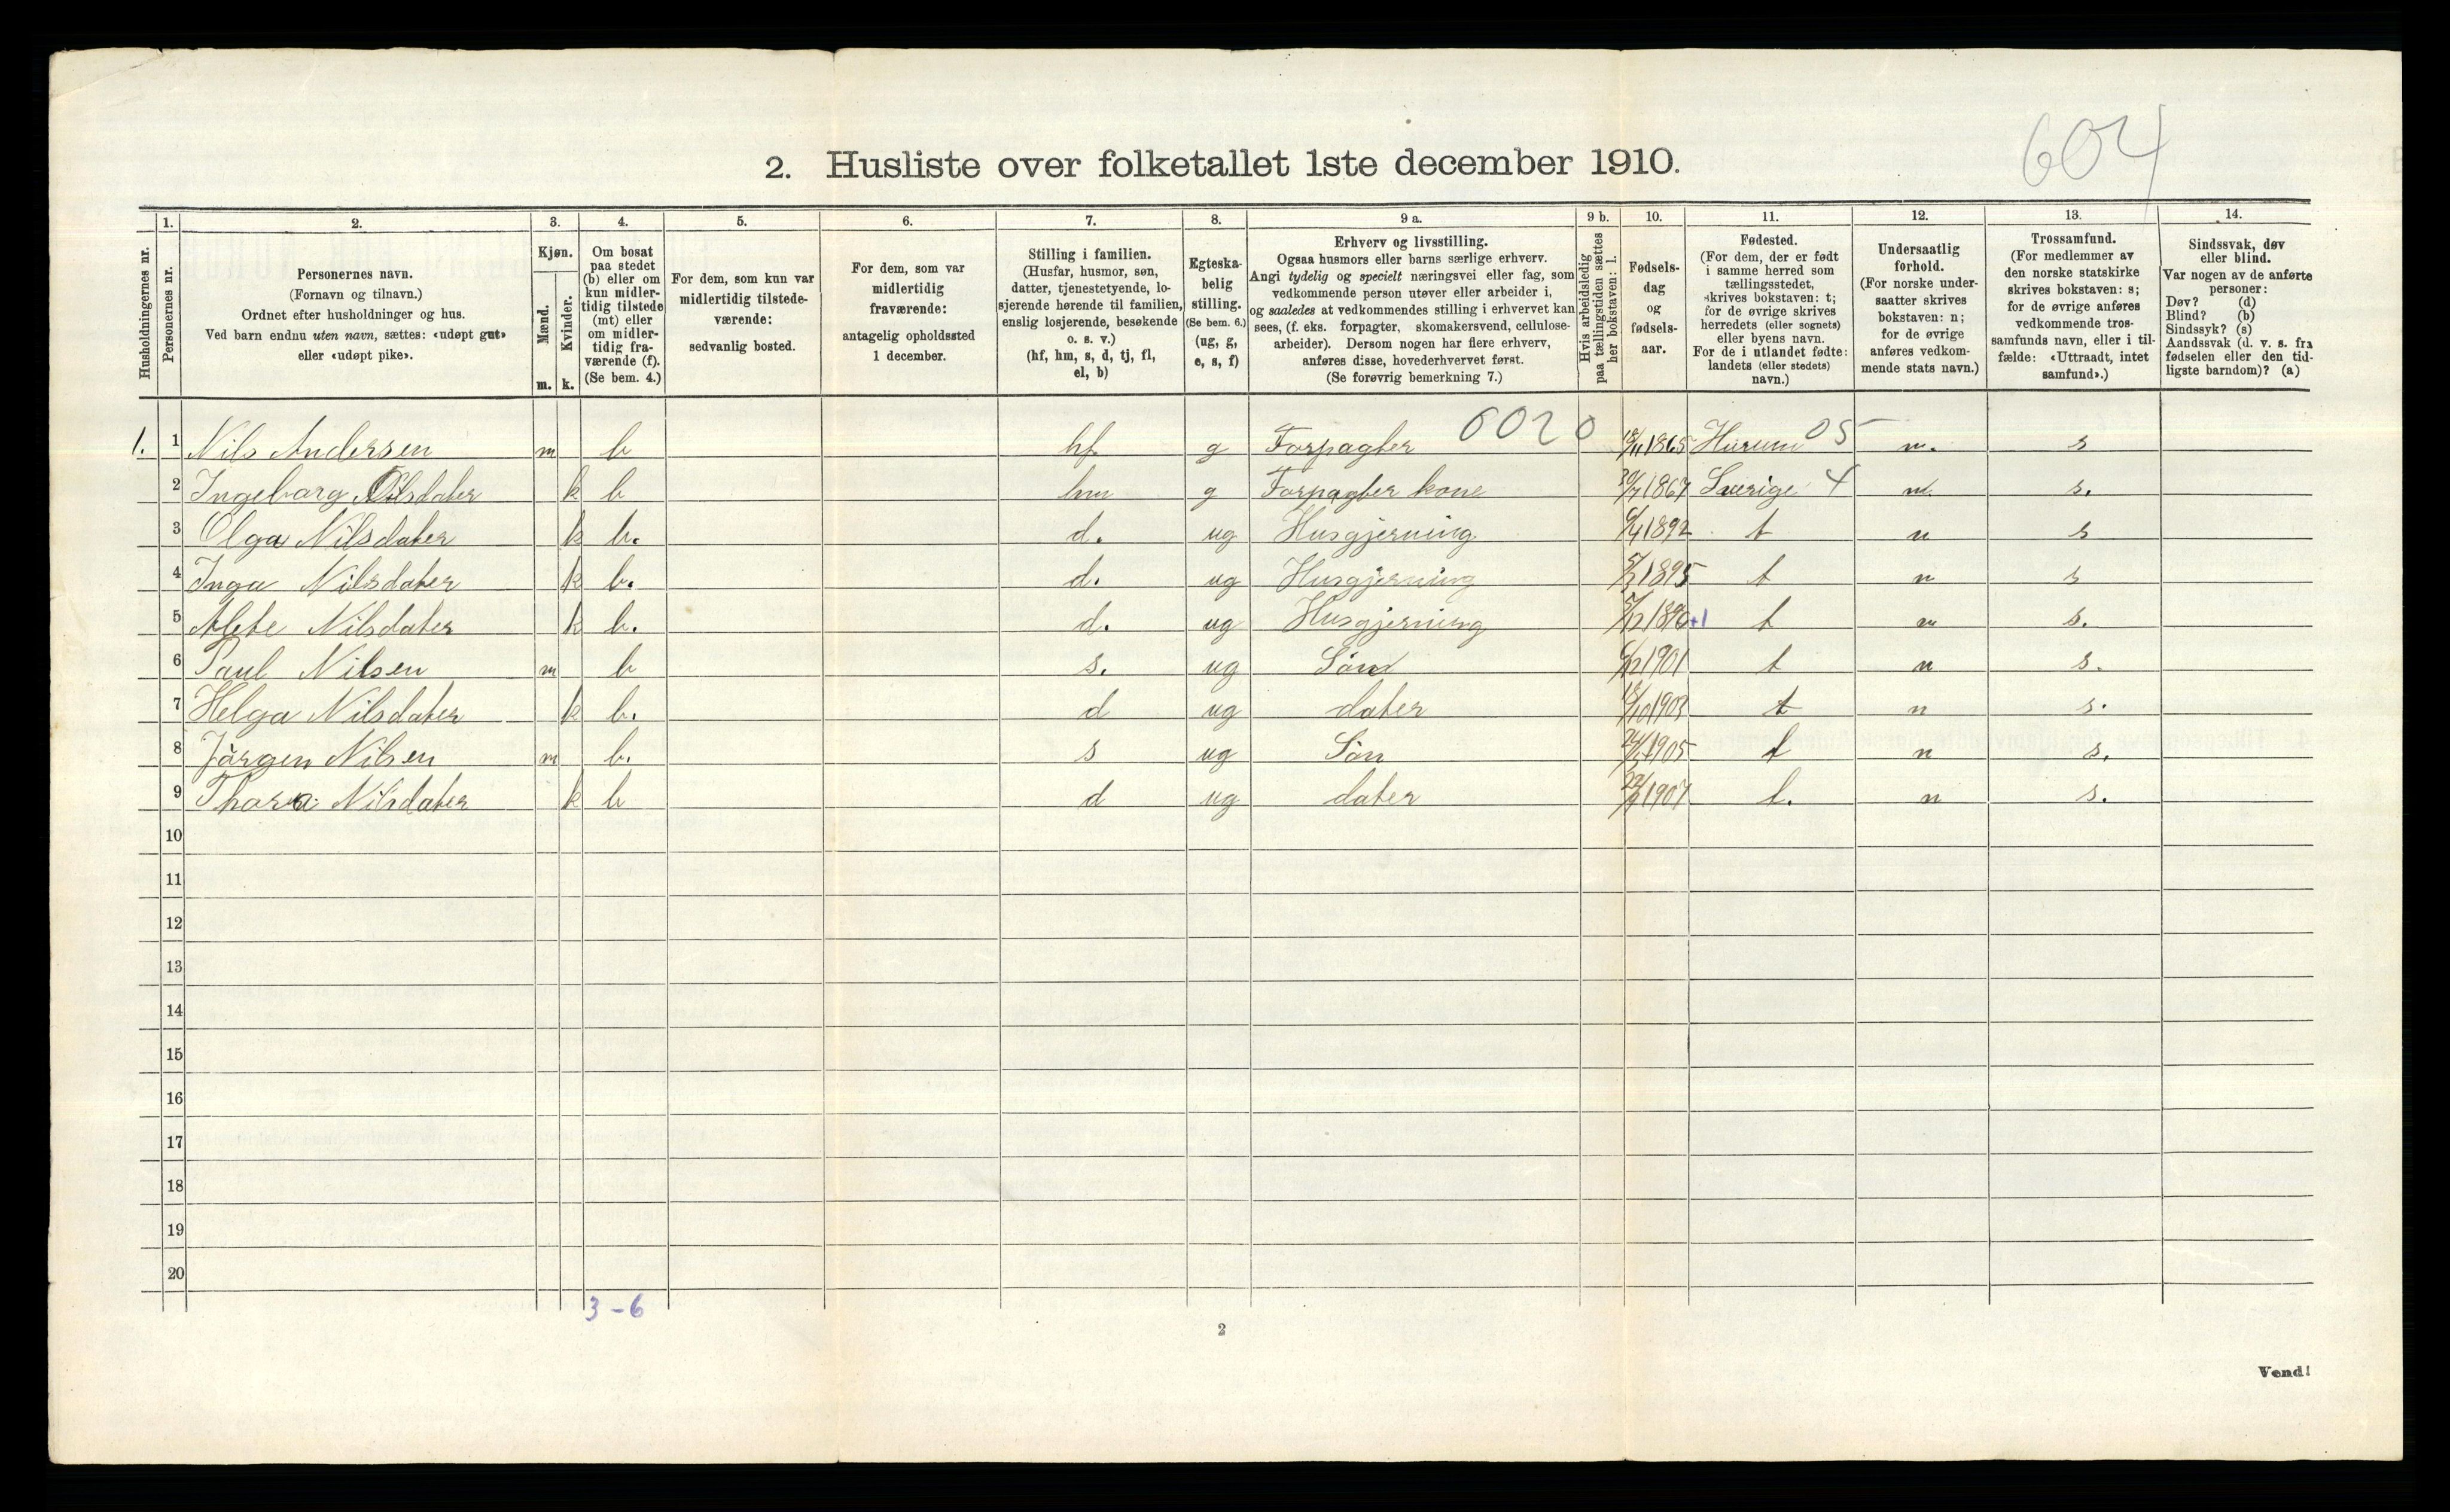 604
2. Husliste over folketallet 1ste december 1910.
1. 2. 3. 4. 5. 6. 7. 8. 9 a. 9 b. 10. 11. 12. 13. 14.
Husholdningernes nr.
Personernes nr.
Personernes navn.
(Fornavn og tilnavn.)
Ordnet efter husholdninger og hus.
Ved barn endnu uten navn, sættes: «udøpt gut»
eller «udøpt pike».
Kjøn.
Mænd.
Kvinder.
m. k.
Om bosat
paa stedet
(b) eller om
kun midler-
tidig tilstede
(mt) eller
om midler-
tidig fra-
værende (f).
(Se bem. 4.)
For dem, som kun var
midlertidig tilstede-
værende:
sedvanlig bosted.
For dem, som var
midlertidig
fraværende:
antagelig opholdssted
1 december.
Stilling i familien.
(Husfar, husmor, søn,
datter, tjenestetyende, lo-
sjerende hørende til familien,
enslig losjerende, besøkende
o. s. v.)
(hf, hm, s, d, tj, fl,
el, b)
Egteska-
belig
stilling.
(Se bem. 6.)
(ug, g,
e, s, f)
Erhverv og livsstilling.
Ogsaa husmors eller barns særlige erhverv.
Angi tydelig og specielt næringsvei eller fag, som
vedkommende person utøver eller arbeider i,
og saaledes at vedkommendes stilling i erhvervet kan
sees, (f. eks. forpagter, skomakersvend, cellulose-
arbeider). Dersom nogen har flere erhverv,
anføres disse, hovederhvervet først.
(Se forøvrig bemerkning 7.)
Hvis arbeidsledig
paa tællingstiden sættes
her bokstaven: l.
Fødsels-
dag
og
fødsels-
aar.
Fødested.
(For dem, der er født
i samme herred som
tællingsstedet,
skrives bokstaven: t;
for de øvrige skrives
herredets (eller sognets)
eller byens navn.
For de i utlandet fødte:
landets (eller stedets)
navn.)
Undersaatlig
forhold.
(For norske under-
saatter skrives
bokstaven: n;
for de øvrige
anføres vedkom-
mende stats navn.)
Trossamfund.
(For medlemmer av
den norske statskirke
skrives bokstaven: s;
for de øvrige anføres
vedkommende tros-
samfunds navn, eller i til-
fælde: «Uttraadt, intet
samfund».)
Sindssvak, døv
eller blind.
Var nogen av de anførte
personer:
Døv? (d)
Blind? (b)
Sindssyk? (s)
Aandssvak (d. v. s. fra
fødselen eller den tid-
ligste barndom)? (a)
1. 1 Nils Andersen m b hf g Forpagter 6020 1865 Hurum 05 n. s
2 Ingeborg k b hm g Forpagter kone 1867 Sverige 4 n. s.
3 Olga Nilsdater k b. d. ug Husgjerning 1892 t n s
4 Inga Nilsdater k b. d. ug Husgjerning 1895 t n s
5 Alete Nilsdater k b. d. ug Husgjerning +1 t n s.
6 Paul Nilsen m b s. ug Sön 1901 t n s.
7 Helga Nilsdater k b. d ug dater 1903 t n s.
8 Jörgen Nilsen m b. s ug Sön 1905 t n s.
9 Thora Nilsdater k b d ug dater 1907 t. n s.
10
11
12
13
14
15
16
17
18
19
20
3-6
2
Vend!